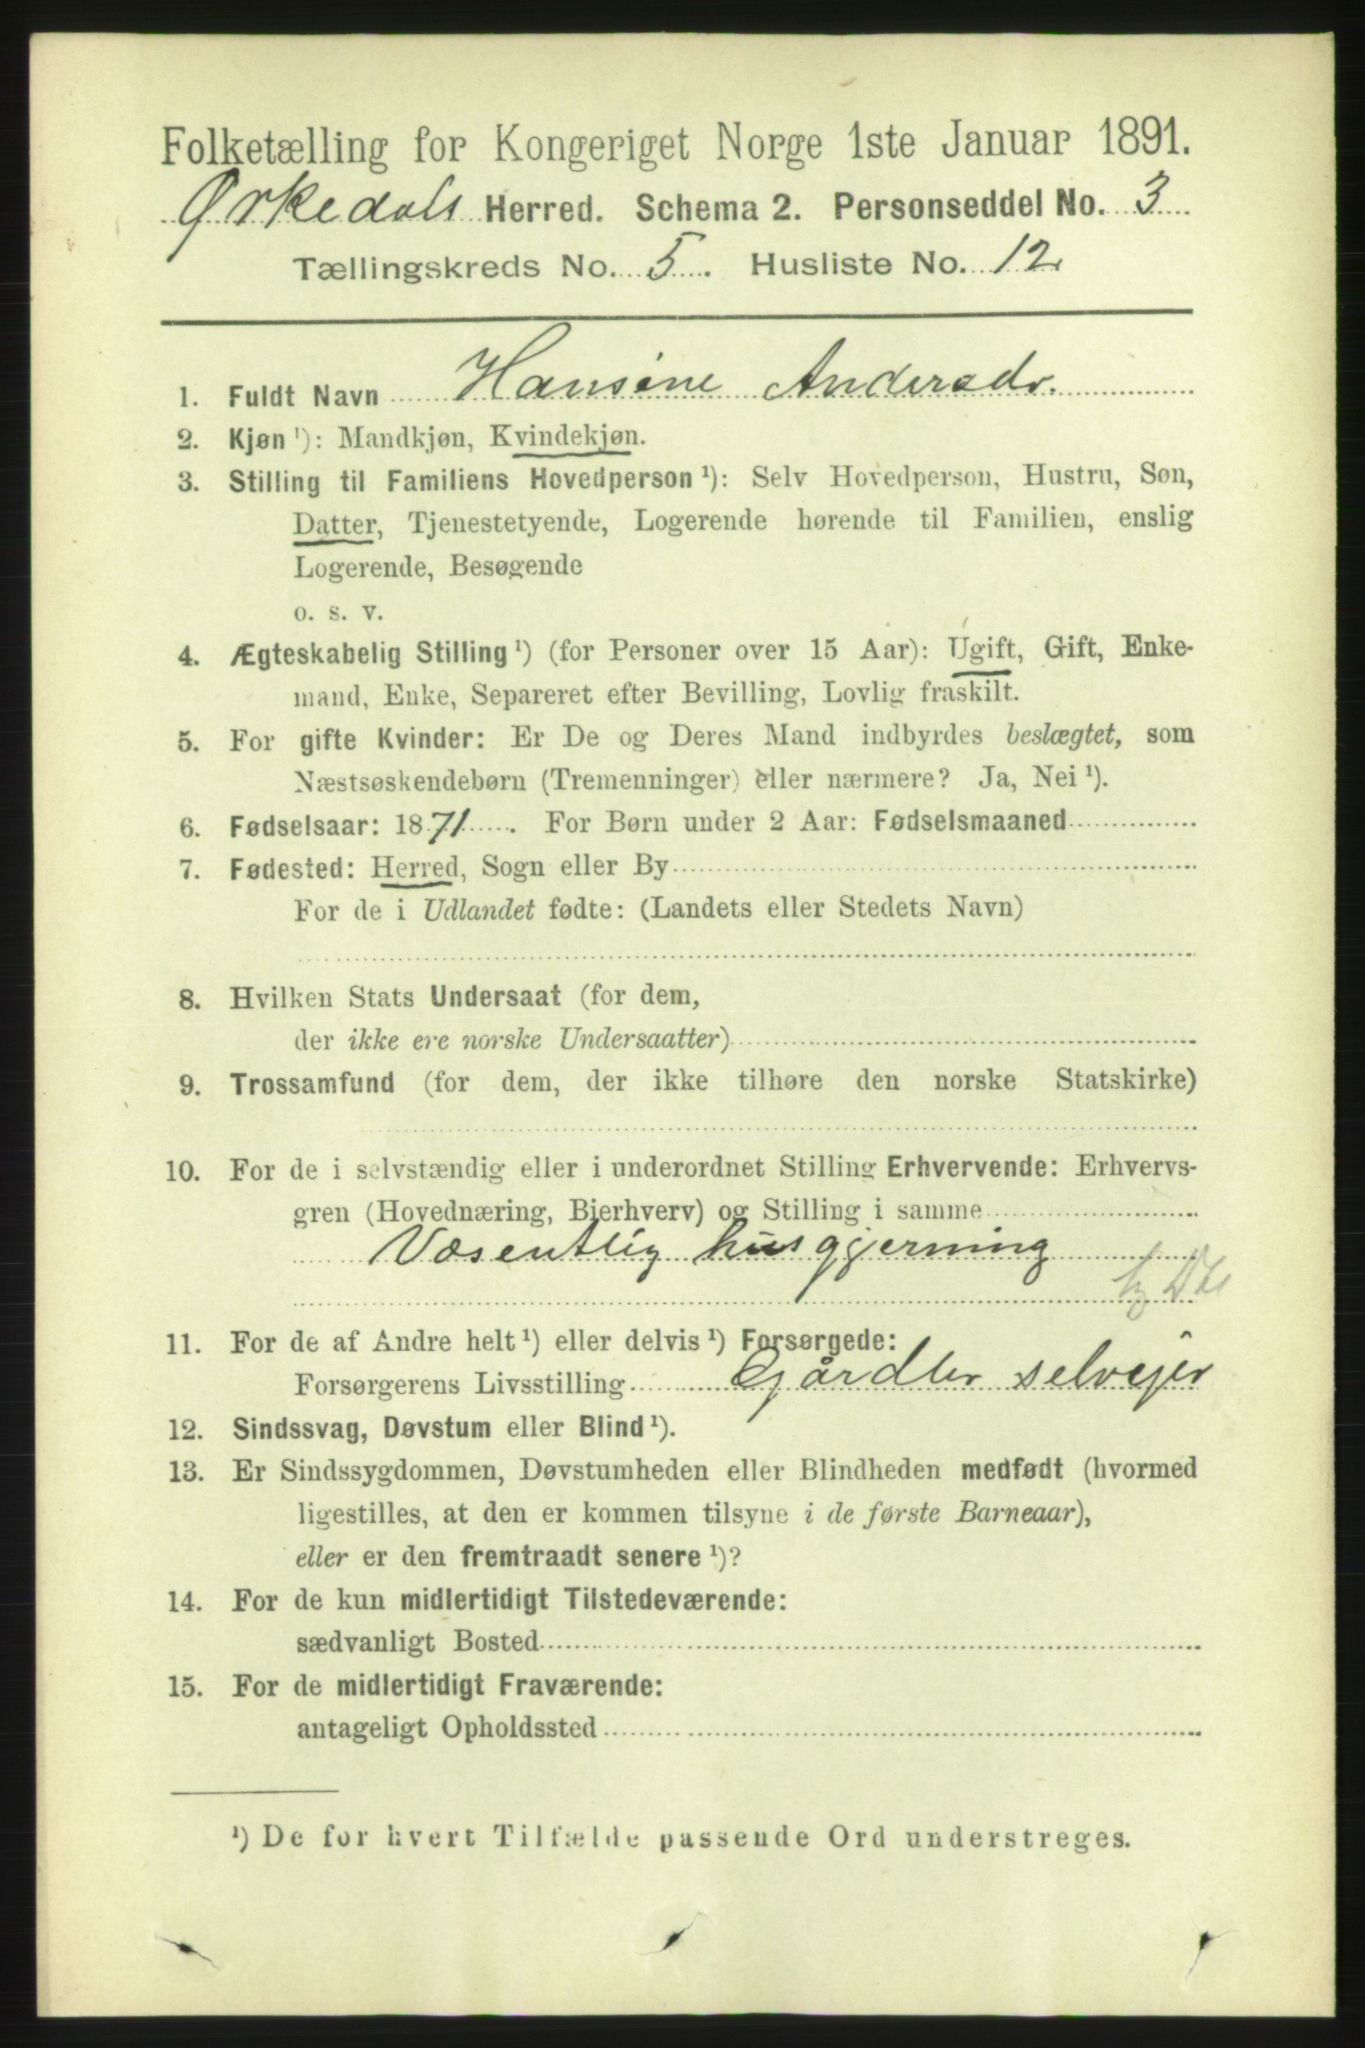 Folketælling for Kongeriget Norge 1ste Januar 1891.
Ørkedals Herred. Schema 2. Personseddel No. 3
Tællingskreds No. 5. Husliste No. 12
1. Fuldt Navn Hansine Andersdr.
2. Kjøn ¹): Mandkjøn, Kvindekjøn.
3. Stilling til Familiens Hovedperson ¹): Selv Hovedperson, Hustru, Søn,
Datter, Tjenestetyende, Logerende hørende til Familien, enslig
Logerende, Besøgende
o. s. v.
4. Ægteskabelig Stilling ¹) (for Personer over 15 Aar): Ugift, Gift, Enke-
mand, Enke, Separeret efter Bevilling, Lovlig fraskilt.
5. For gifte Kvinder: Er De og Deres Mand indbyrdes beslægtet, som
Næstsøskendebørn (Tremenninger) eller nærmere? Ja, Nei ¹).
6. Fødselsaar: 1871. For Børn under 2 Aar: Fødselsmaaned
7. Fødested: Herred, Sogn eller By
For de i Udlandet fødte: (Landets eller Stedets Navn)
8. Hvilken Stats Undersaat (for dem,
der ikke ere norske Undersaatter)
9. Trossamfund (for dem, der ikke tilhøre den norske Statskirke)
10. For de i selvstændig eller i underordnet Stilling Erhvervende: Erhvervs-
gren (Hovednæring, Bierhverv) og Stilling i samme
Væsentlig husgjerning
11. For de af Andre helt ¹) eller delvis ¹) Forsørgede:
Forsørgerens Livsstilling Gårdbr selvejer
12. Sindssvag, Døvstum eller Blind ¹).
13. Er Sindssygdommen, Døvstumheden eller Blindheden medfødt (hvormed
ligestilles, at den er kommen tilsyne i de første Barneaar),
eller er den fremtraadt senere ¹)?
14. For de kun midlertidigt Tilstedeværende:
sædvanligt Bosted
15. For de midlertidigt Fraværende:
antageligt Opholdssted
¹) De for hvert Tilfælde passende Ord understreges.